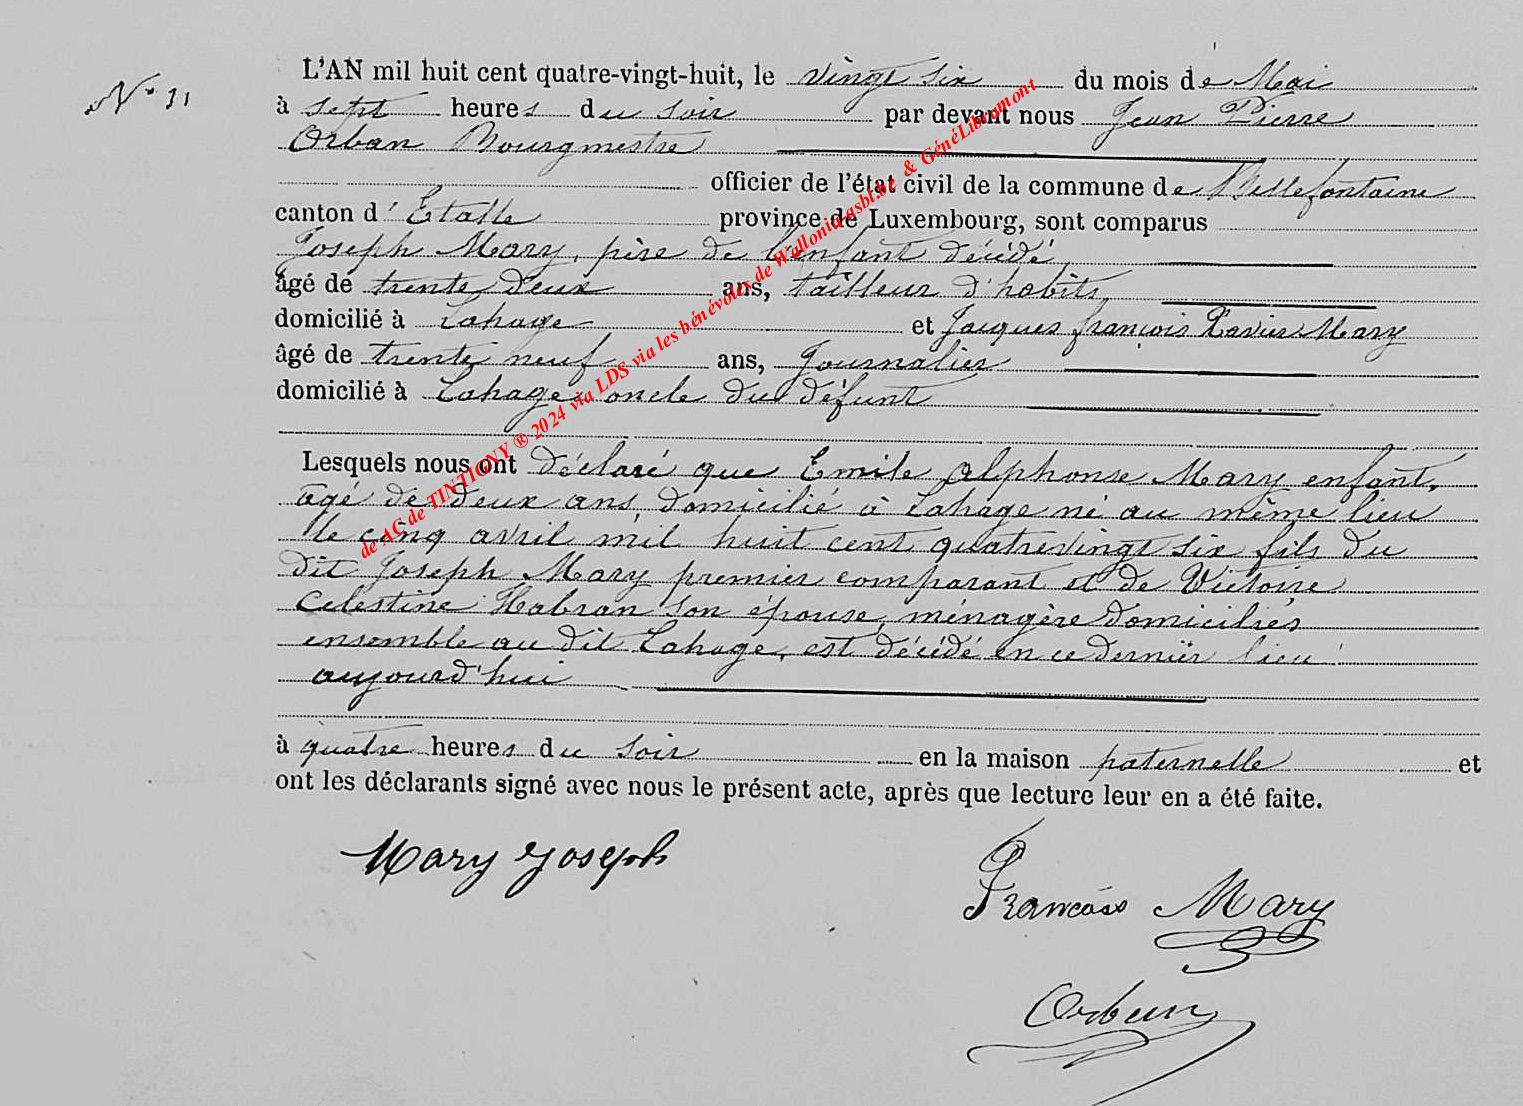 N° 31
L'AN mil huit cent quatre-vingt-huit, le vingt six du mois de Mai
à sept heures du soir par devant nous Jean Pierre
Orban Bourgmestre
officier de l'état civil de la commune de Bellefontaine
canton d'Etalle province de Luxembourg, sont comparus
Joseph Mary, père de l'enfant décédé,
âgé de trente deux ans, tailleur d'habits,
domicilié à Lahage et Jacques françois Xavier Mary
âgé de trente neuf ans, Journalier
domicilié à Lahage oncle du défunt
Lesquels nous ont déclaré que Emile Alphonse Mary enfant,
âgé de deux ans, domicilié à Lahage né au même lieu
le cinq avril mil huit cent quatrevingt six fils du
dit Joseph Mary premier comparant et de Victoire
Celestine Habran son épouse, ménagère domiciliés
ensemble au dit Lahage, est décédé en ce dernier lieu
aujourd'hui
à quatre heures du soir en la maison paternelle et
ont les déclarants signé avec nous le présent acte, après que lecture leur en a été faite.
Mary Joseph
Francois Mary
Orban
de AC de TINTIGNY ® 2024 via LDS via les bénévoles de Wallonia asbl.be & GénéLibramont